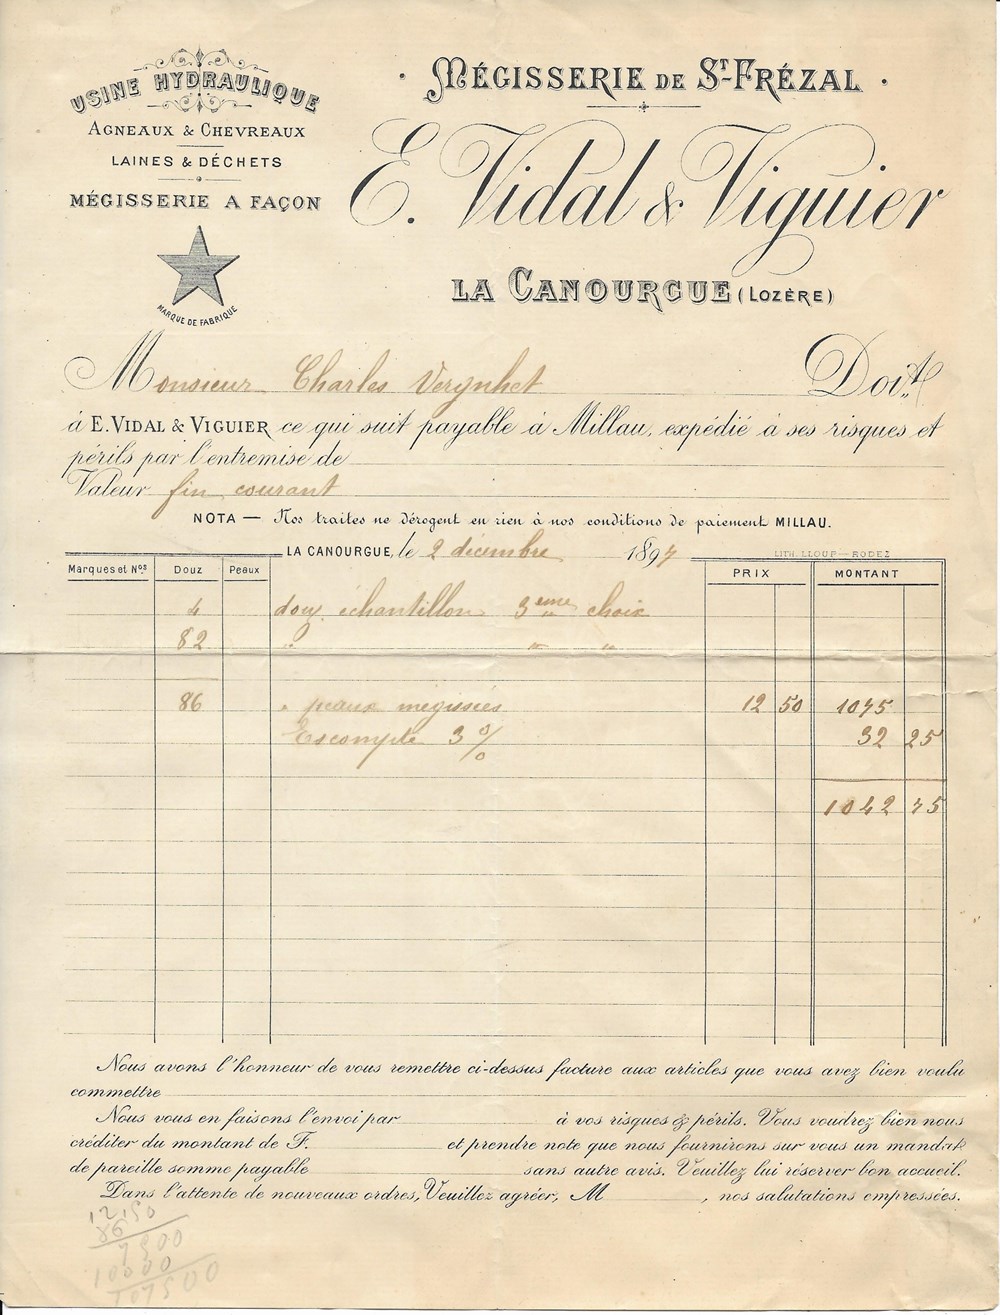 USINE HYDRAULIQUE
AGNEAUX & CHEVREAUX
LAINES & DÉCHETS
MÉGISSERIE A FAÇON
MARQUE DE FABRIQUE
MÉGISSERIE DE ST-FRÉZAL
E. Vidal & Viguier
LA CANOURGUE (LOZÈRE)
Monsieur Charles Vergnhet Doit
à E. VIDAL & VIGUIER ce qui suit payable à Millau, expédié à ses risques et
périls par l'entremise de
Valeur fin courant
NOTA — Nos traites ne dérogent en rien à nos conditions de paiement MILLAU.
LA CANOURGUE, le 2 décembre 1897
LITH. LLOUP - RODEZ
Marques et Nos Douz Peaux PRIX MONTANT
4 douz échantillon 3ème choix
82 " " "
86 " peaux mégissées 12 50 1075
Escompte 3 % 32 25
1042 75
Nous avons l'honneur de vous remettre ci-dessus facture aux articles que vous avez bien voulu
commettre
Nous vous en faisons l'envoi par à vos risques & périls. Vous voudrez bien nous
créditer du montant de F. et prendre note que nous fournirons sur vous un mandat
de pareille somme payable sans autre avis. Veuillez lui réserver bon accueil.
Dans l'attente de nouveaux ordres, Veuillez agréer, M , nos salutations empressées.
12,50
86
7500
10000
107500